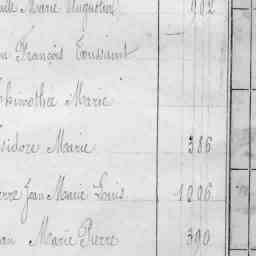 Marie Augustine 902
François Toussaint
Thimothee Marie
Isidore Marie 386
Jean Marie Louis 1206
Marie Pierre 390